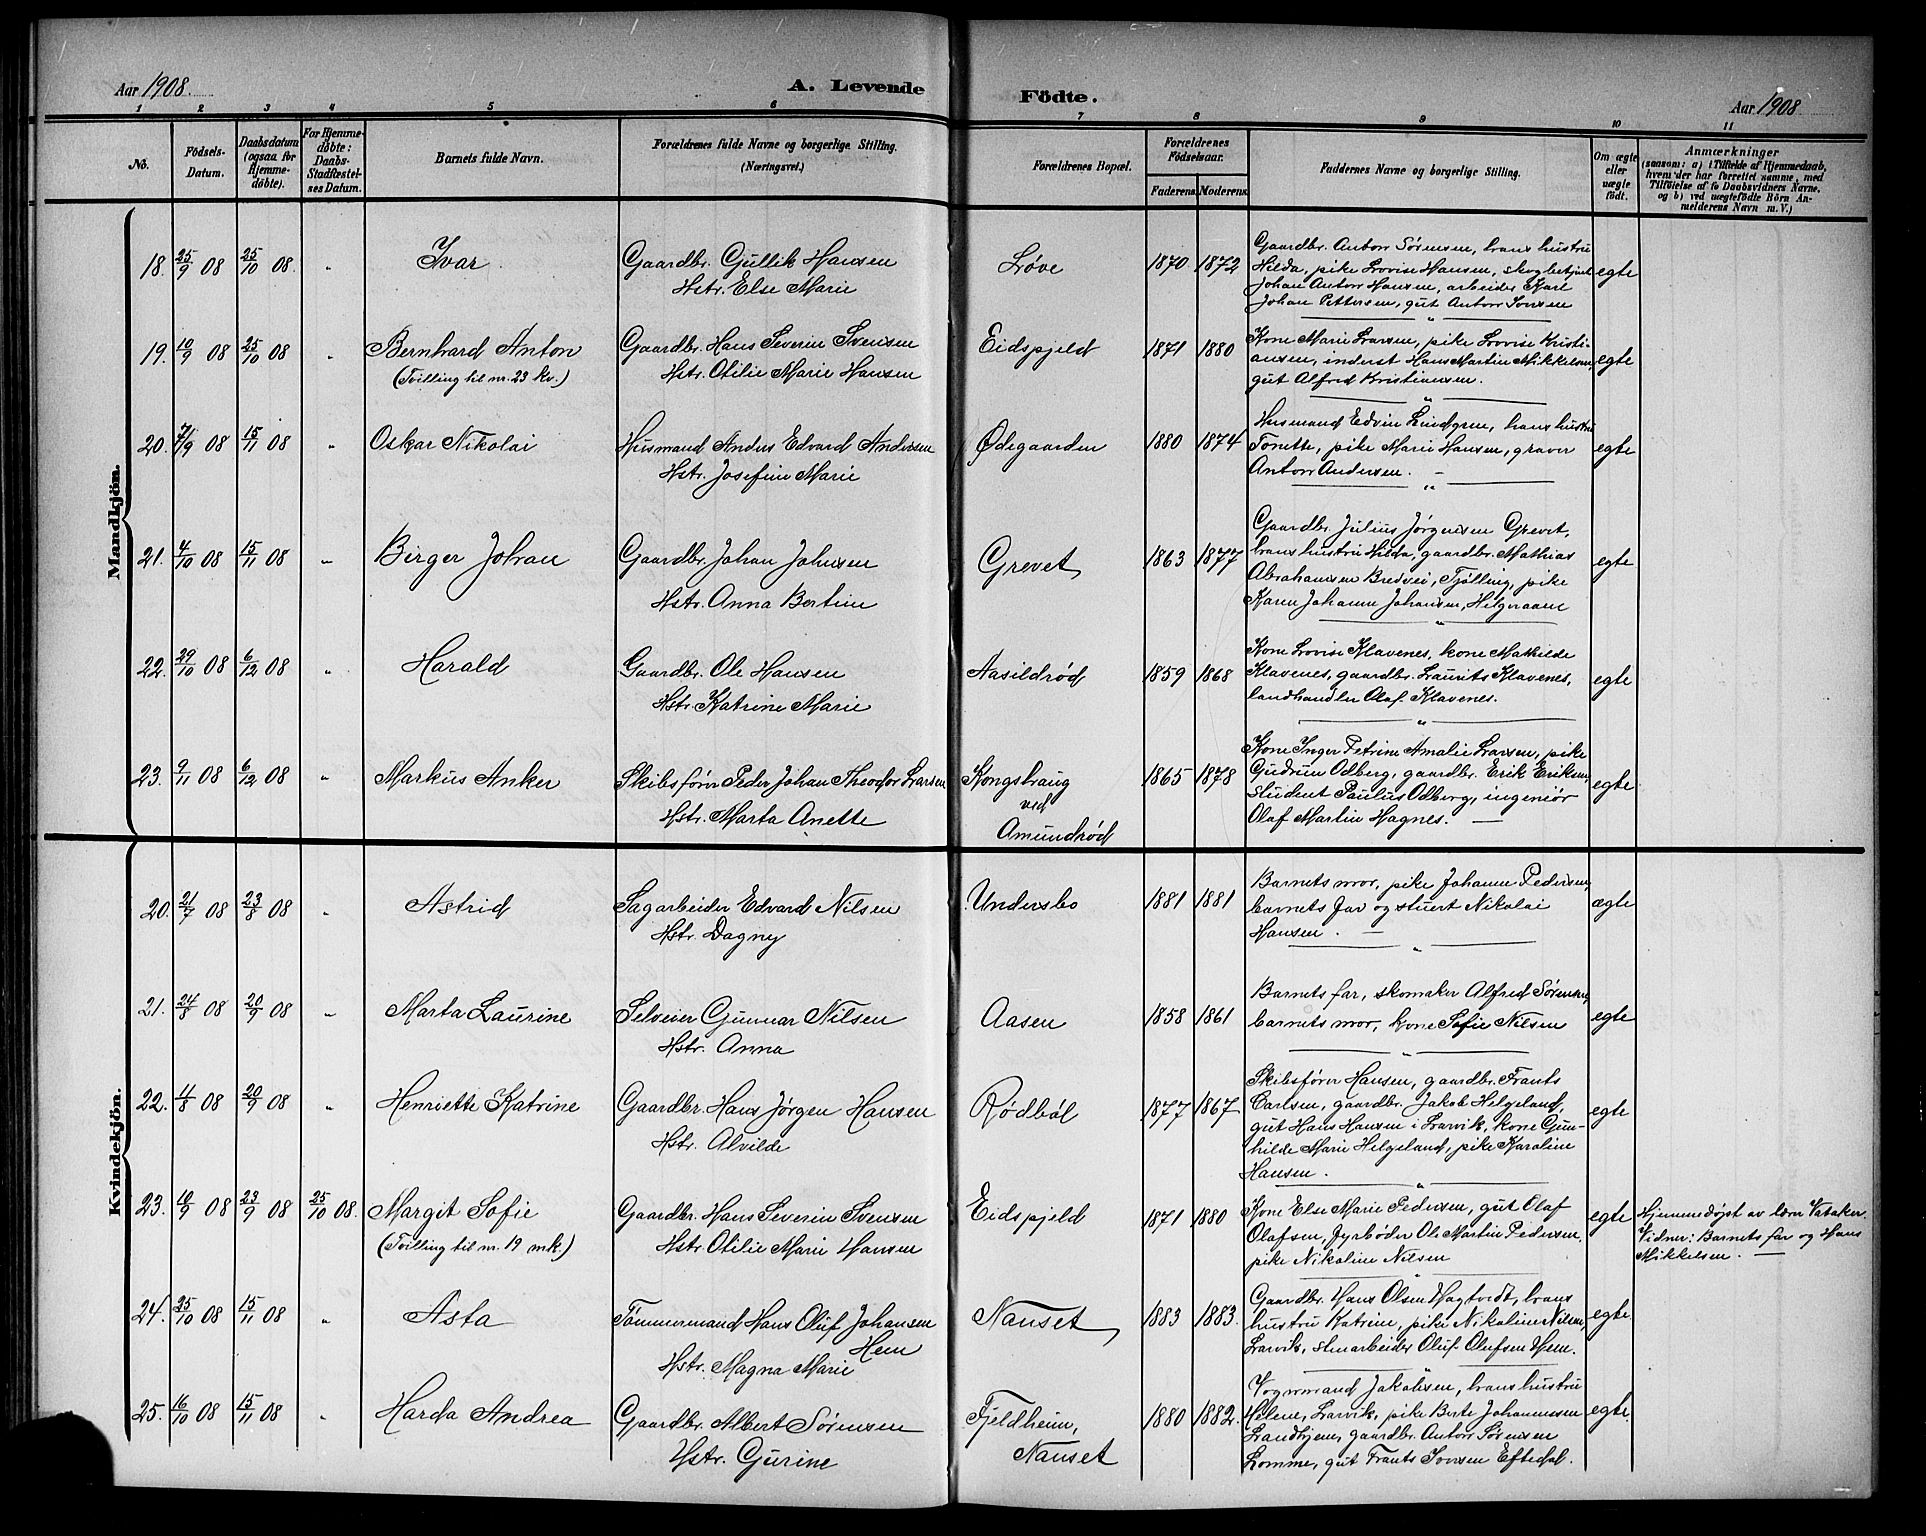 Aar 1908.
A. Levende
Födte.
Aar 1908
1 2 3 4 5 6 7 8 9 10 11
No.
Födsels-
Datum.
Daabsdatum
(ogsaa for
Hjemme-
döbte).
For Hjemme-
döbte:
Daabs-
Stadfæstel-
ses Datum.
Barnets fulde Navn.
Forældrenes fulde Navne og borgerlige Stilling.
(Næringsvei.)
Forældrenes Bopæl.
Forældrenes
Födselsaar.
Faderens. Moderens.
Faddernes Navne og borgerlige Stilling.
Om ægte
eller
uægte
födt.
Anmærkninger
(saasom: a) i Tilfælde af Hjemmedaab,
hvem der har forrettet samme, med
Tilföielse af to Daabsvidners Navne,
og b) ved uægtefödte Börn An-
melderens Navn m. V.)
Mandkjön.
18. 25/9 08 25/10 08. " Ivar. Gaardbr. Gullik Hansen
Hstr. Else Marie
Løve 1870 1872
Gaardbr. Anton Sørensen, hans hustru
Hilda, pike Lovise Hansen, skogbetjent
Johan Anton Hansen, arbeider Karl
Johan Pettersen, gut Anton
egte
19. 10/9 08 25/10 08 " Bernhard Anton
(Tvilling til nr. 23 kv.)
Gaardbr. Hans Severin Svensen
Hstr. Otilie Marie Hansen
Eidsfjeld 1871 1880
Kone Marie Larsen, pike Lovise Kristi-
ansen, inderst Hans Martin Mikkelsen,
gut Alfred Kristiansen.
egte
20. 7/9 08 15/11 08 " Oskar Nikolai
Husmand Anders Edvard Andersen
Hstr. Josefine Marie
Ødegaarden 1880 1874
Husmand Edvin Lindgren, hans hustru
Tonette, pike Marie Hansen, graver
Anton Andersen. -
egte
21. 4/10 08 15/11 08 " Birger Johan
Gaardbr. Johan Johnsen
Hstr. Anna Bertine
Grevet 1863 1877
Gaardbr. Julius Jørgensen Grevet,
hans hustru Hilda, gaardbr. Mathias
Abrahamsen Bredvei, Tjølling, pike
Karen Johanne Johansen, Helgeraaen
egte
22. 29/10 08 6/12 08 " Harald
Gaardbr. Ole Hansen
Hstr. Katrine Marie
Aasildrød 1859 1868
Kone Lovise Klavenes, kone Mathilde
Klavenes, gaardbr. Laurits Klavenes,
landhandler Olaf Klavenes.
egte
23. 9/11 08 6/12 08 " Markus Anker
Skibsfører Peder Johan Theodor Larsen
Hstr. Marta Anette
Kongshaug
ved
Amundrød
1865 1878
Kone Inger Petrine Amalie Larsen, pike
Gudrun Odberg, gaardbr. Erik Eriksen,
student Paulus Odberg, ingeniør
Olaf Martin Hagnes. —
egte
Kvindekjön.
20. 21/7 08 23/8 08 " Astrid
Sagarbeider Edvard Nilsen
Hstr. Dagny
Undersbo 1881 1881
Barnets mor, pike Johanne Pedersen,
barnets far og stuert Nikolai
Hansen. —
ægte
21. 24/8 08 20/9 08 " Marta Laurine
Selveier Gunnar Nilsen
Hstr. Anna
Aasen 1858 1861
Barnets far, skomaker Alfred Sørensen,
barnets mor, kone Sofie Nilsen
egte
22. 11/8 08 20/9 08 " Henriette Katrine
Gaardbr. Hans Jørgen Hansen
Hstr. Alvilde
Rødbøl 1877 1867
Skibsfører Hansen, gaardbr. Frants
Carlsen, gaardbr. Jakob Helgeland,
gut Hans Hansen i Larvik, kone Gun-
hilde Marie Helgeland, pike Karoline
Hansen.
egte
23. 10/9 08 23/9 08 25/10 08. Margit Sofie
(Tvilling til nr. 19 mk.)
Gaardbr. Hans Severin Svensen
Hstr. Otilie Marie Hansen
Eidsfjeld 1871 1880
Kone Else Marie Pedersen, gut Olaf
Olafsen, fyrbøder Ole Martin Pedersen,
pike Nikoline Nilsen
egte
Hjemmedøpt av lærer Vataker.
Vidner: Barnets far og Hans
Mikkelsen. —
24. 25/10 08 15/11 08 " Asta
Tømmermand Hans Oluf Johansen
Hem
Hstr. Magna Marie
Nanset 1883 1883.
Gaardbr. Hans Olsen Hagtvedt, hans
hustru Katrine, pike Nikoline Nilsen,
Larvik, stenarbeider Oluf Olufsen Hem.
egte
25. 16/10 08 15/11 08 " Harda Andrea
Gaardbr. Albert Sørensen
Hstr. Gurine
Fjeldheim,
Nanset
1880 1882.
Vognmand Jakobsen, hans hustru
Helene, Larvik, pike Berte Johannessen
gaardbr. Anton Sørensen
Lomme, gut Frants Eftedal.
egte.